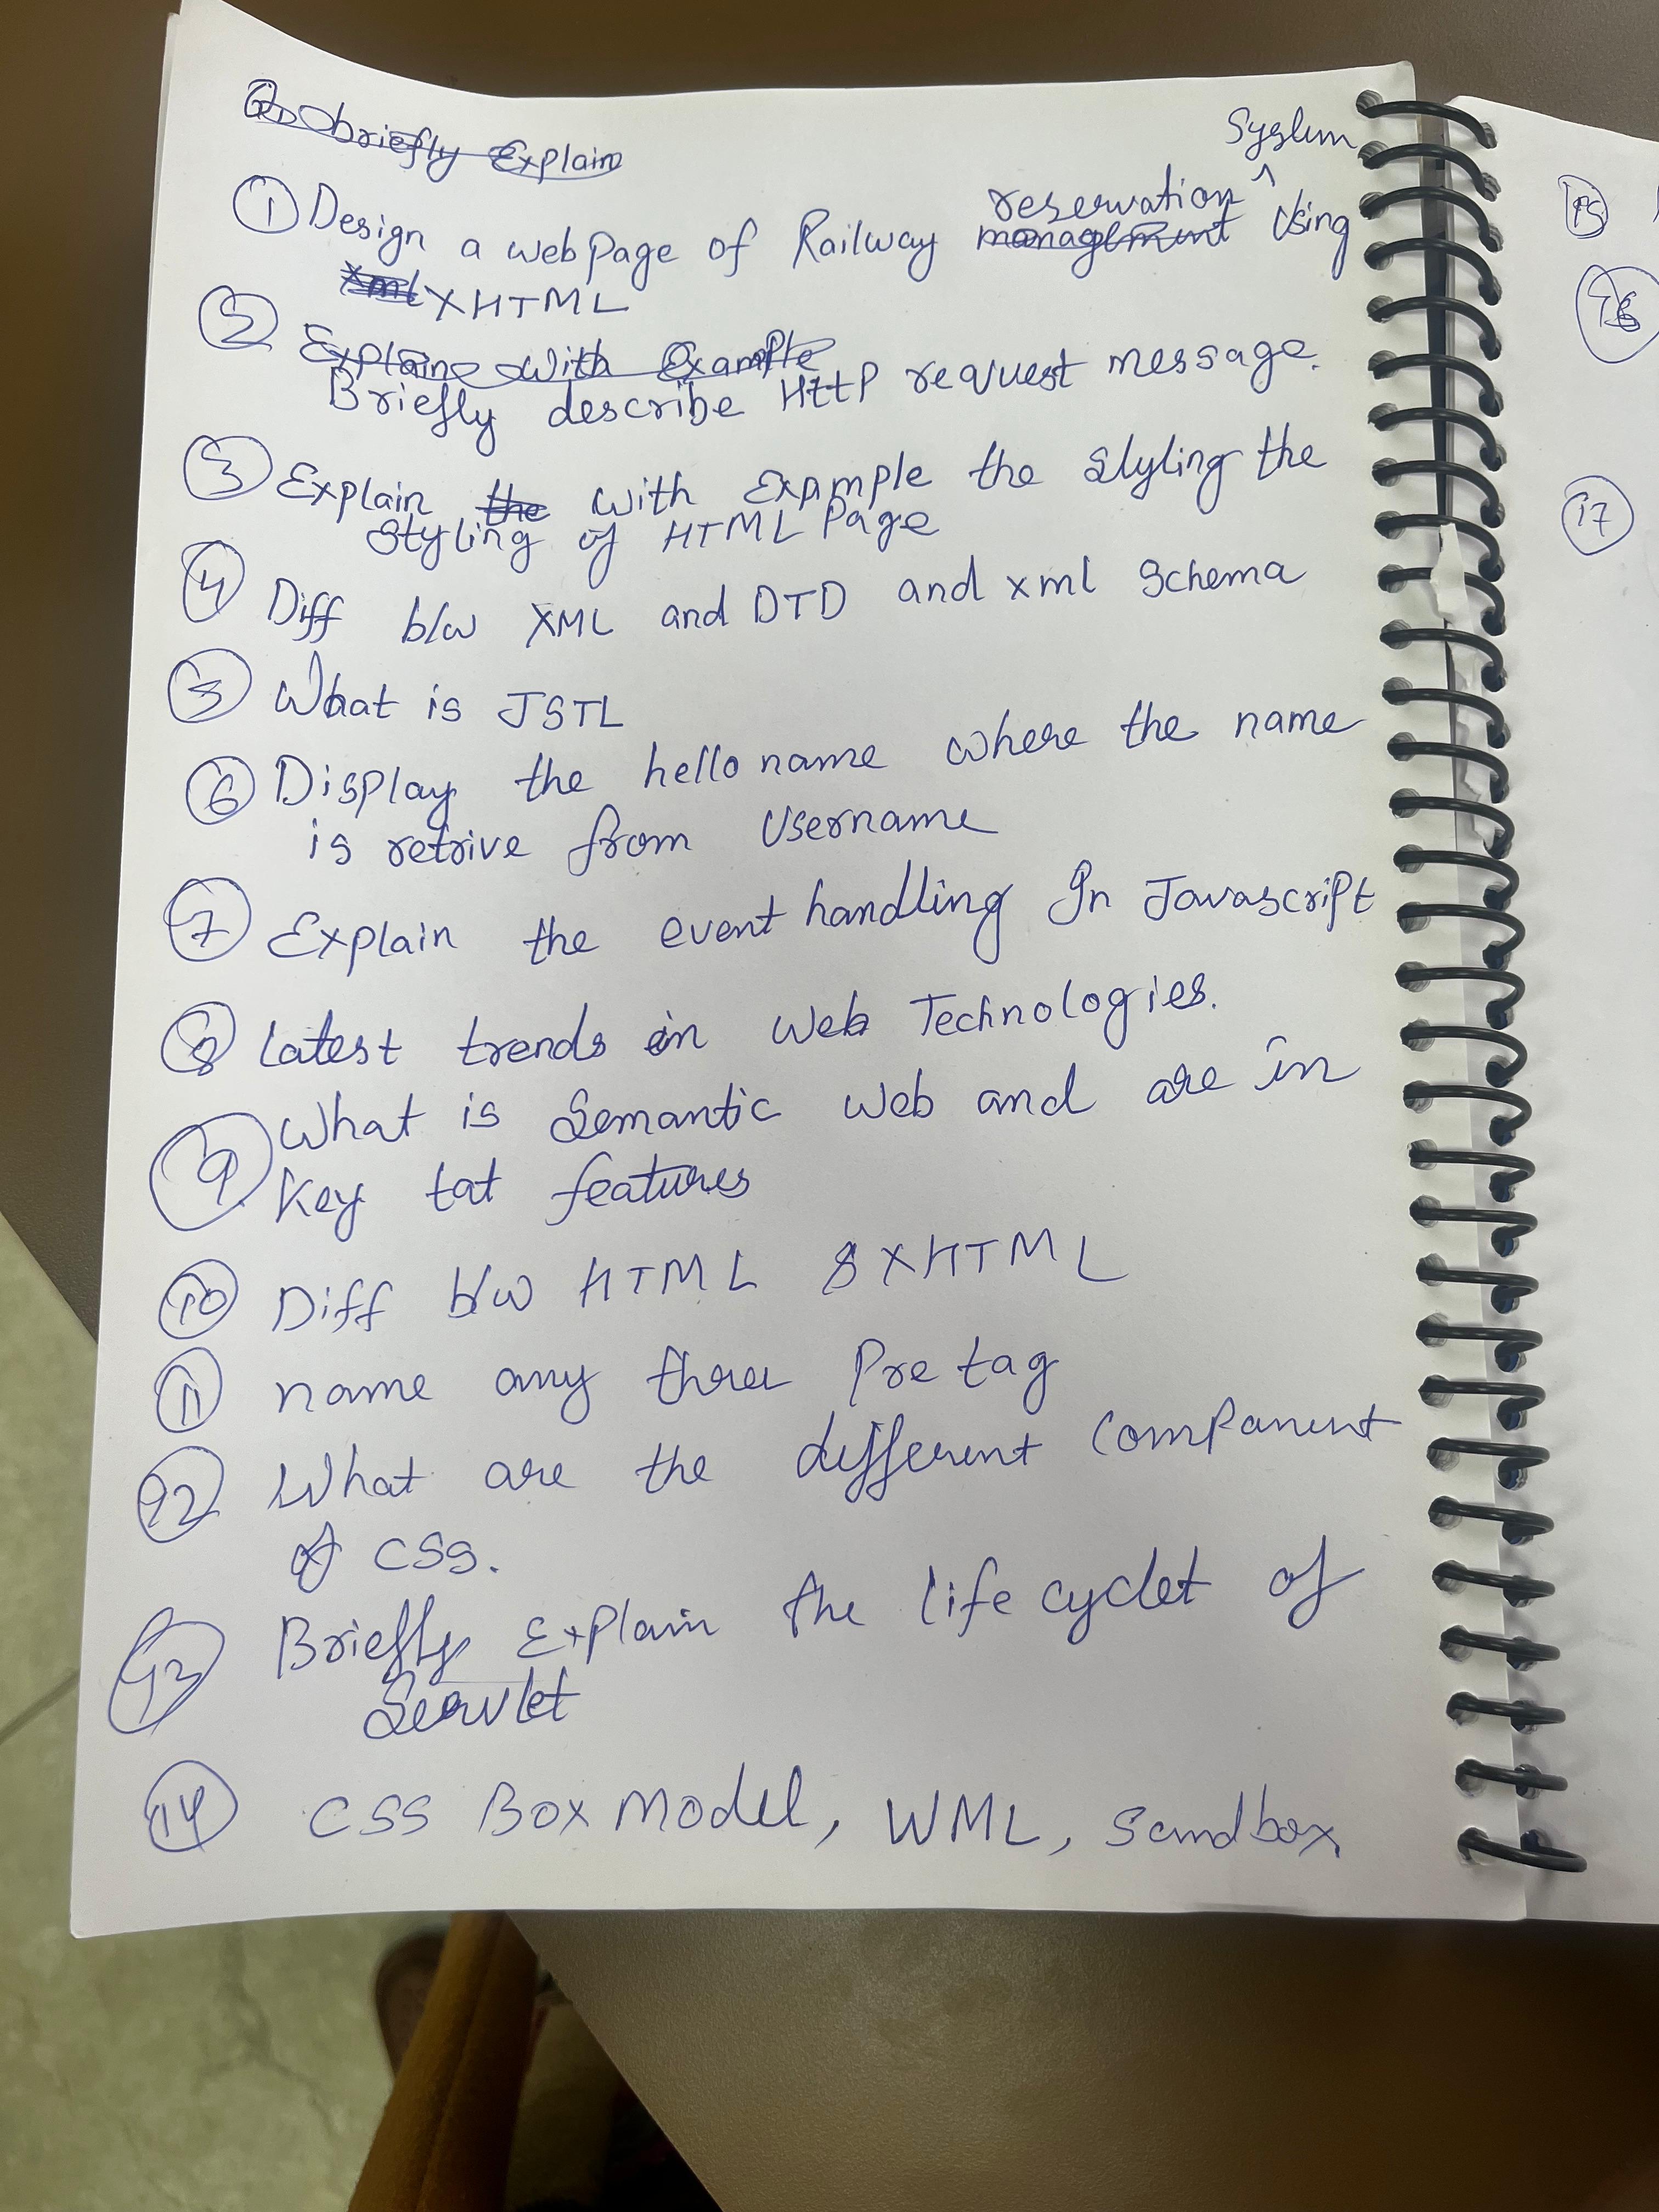 Briefly Explain
System
reservation ^
① Design a web Page of Railway managment Using
xml XHTML
②
Explain with Example
Briefly describe HttP request message.
③ Explain the with Example the slyling the
Styling of HTML Page
④ Diff b/w XML and DTD and xml Schema
⑤ What is JSTL
⑥ Display the hello name where the name
is retrive from Username
⑦ Explain the event handling In Javascript
⑧ Latest trends in Web Technologies.
⑨ What is Semantic Web and are in
Key tat features
⑩ Diff b/w HTML & XHTML
⑪ name any three Pre tag
⑫ What are the different Companent
of CSS.
⑬ Briefly Explain the life cyclet of
Servlet
⑭ CSS Box Model, WML, Sandbox
⑮
⑯
⑰